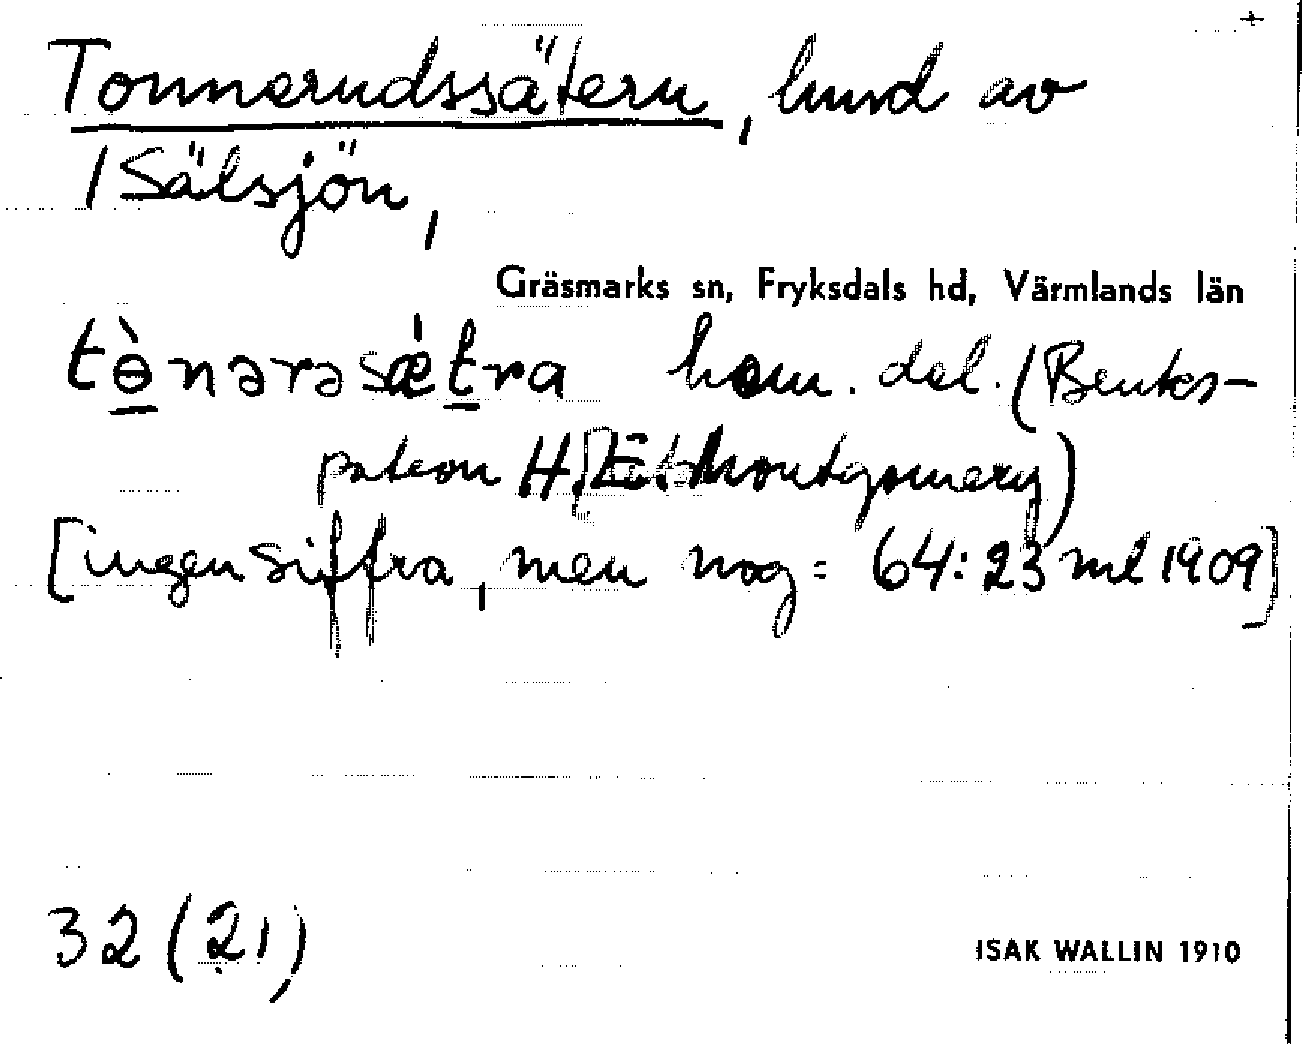 Tonnerudssätern, hmd av
1 Sälsjön,
Gräsmarks sn, Fryksdals hd, Värmlands län
tɵ̀nərəsǽtra hem. del. (Bruks-
patron H. E. Montgomery)
[ingen siffra, men nog = 64:23 ml 1909]
32 (21)
ISAK WALLIN 1910